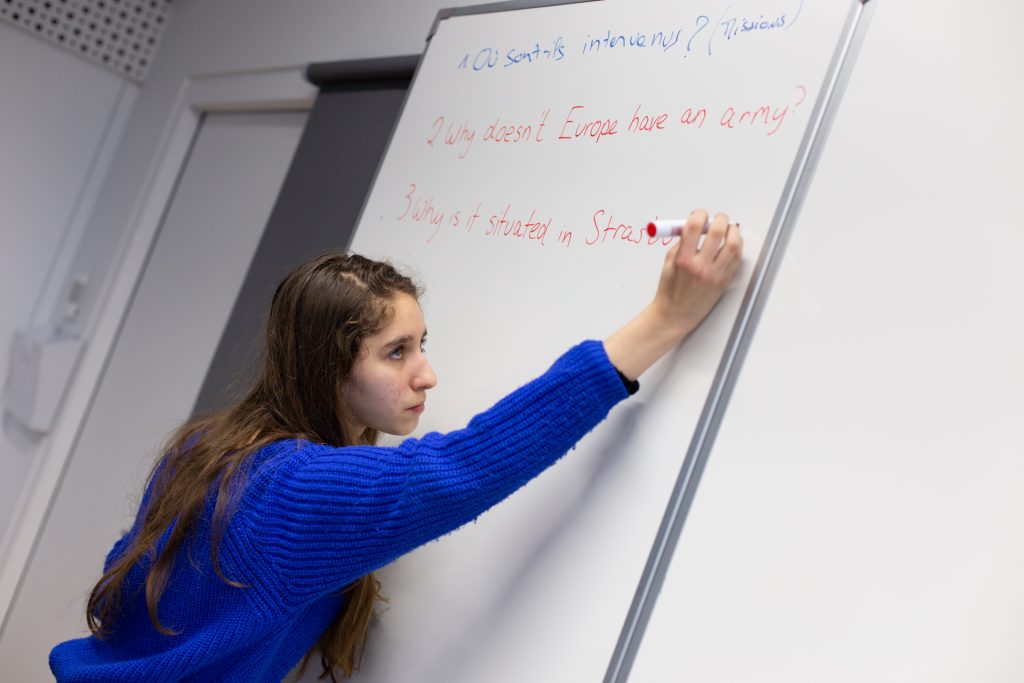 1. Où sont-ils intervenus? (Missions)
2. Why doesn't Europe have an army?
3. Why is it situated in Strasbo